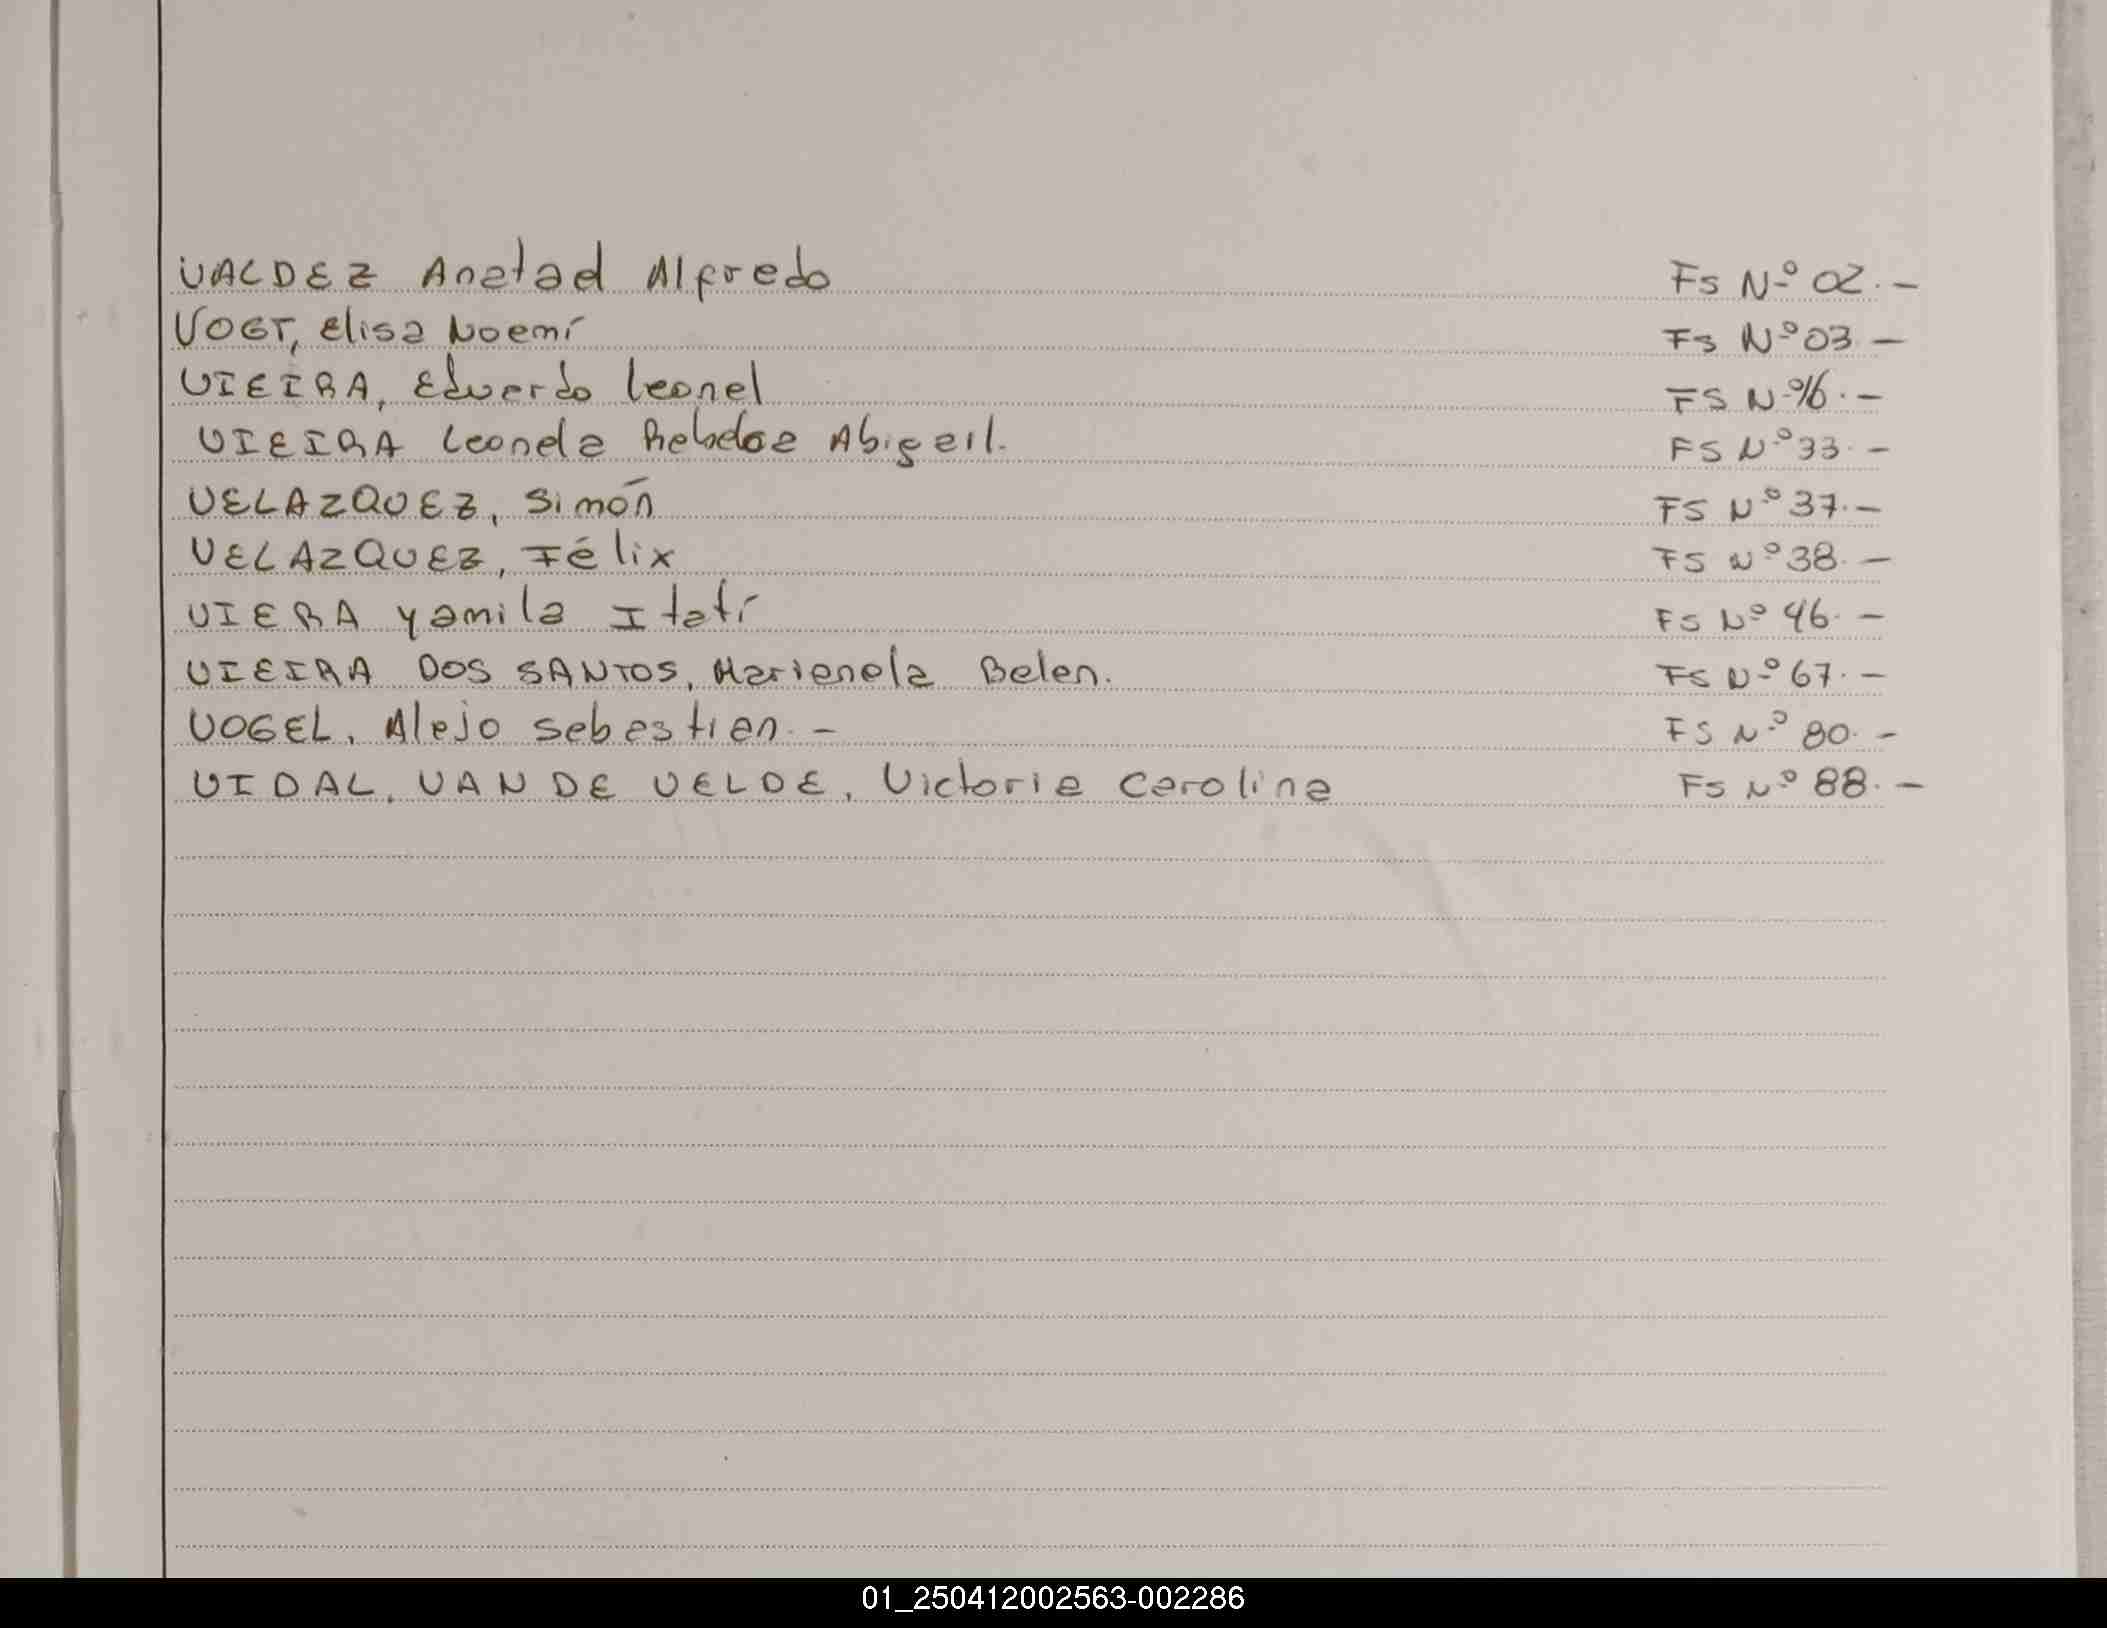 VALDEZ Anatad Alfredo Fs Nº 02.-
VOGT, Elisa Noemí Fs Nº 03.-
VIEIRA, Eduardo Leonel FS Nº 16.-
VIEIRA Leonela Abigail. FS Nº 33.-
VELAZQUEZ, Simón FS Nº 37.-
VELAZQUEZ, Félix FS Nº 38.-
VIERA Yamila Itatí Fs Nº 46.-
VIEIRA DOS SANTOS, Marianela Belen. FS Nº 67.-
VOGEL, Alejo Sebastian.- FS Nº 80.-
VIDAL, VAN DE VELDE, Victoria Carolina Fs Nº 88.-
01_250412002563-002286